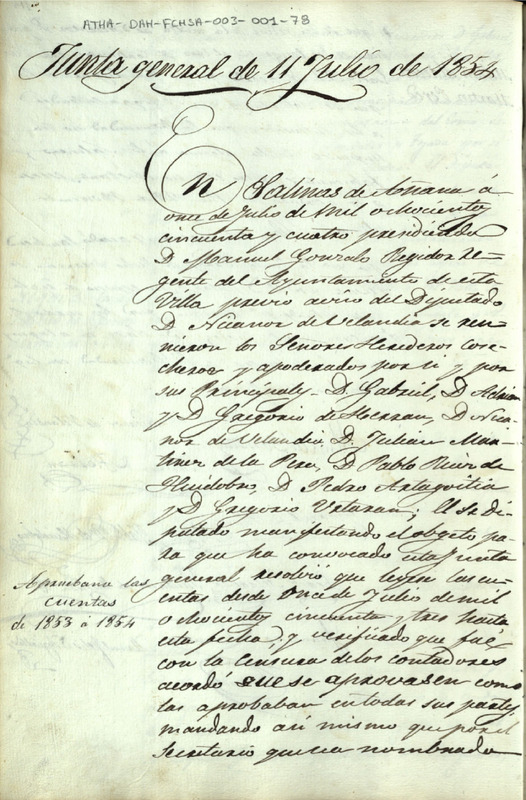 ATHA-DAH-FCHSA-003-001-78
Junta general de 11 Julio de 1854
En Salinas de Añana á
once de Julio de mil ochocientos
cincuenta y cuatro presidiendo
D Manuel Gonzalo Regidor Re-
gente del Ayuntamiento de esta
Villa previo aviso del Diputado
D Nicanor de Velandia se reu-
nieron los Señores Herederos cose-
cheros y apoderados por si y por
sus Principales D. Gabriel, D Adrian
y D Gregorio de Herran, D Nica-
nor de Velandia D. Julian Mar-
tinez de la Pera, D Pablo Ruiz de
Huidobro, D Pedro Artagoitia
y D Gregorio Vetaran; El Sr Di-
putado manifestando el obgeto pa-
ra que ha convocado esta Junta
general resolvió que leyese las cu-
entas desde once de Julio de mil
ochocientos cincuenta y tres hasta
esta fecha, y verificado que fué
con la censura de los contadores
acordó que se aprovasen como
las aprobaban en todas sus partes,
mandando asi mismo que por el
Secretario que sea nombrado
Apruebanse las
cuentas
de 1853 á 1854